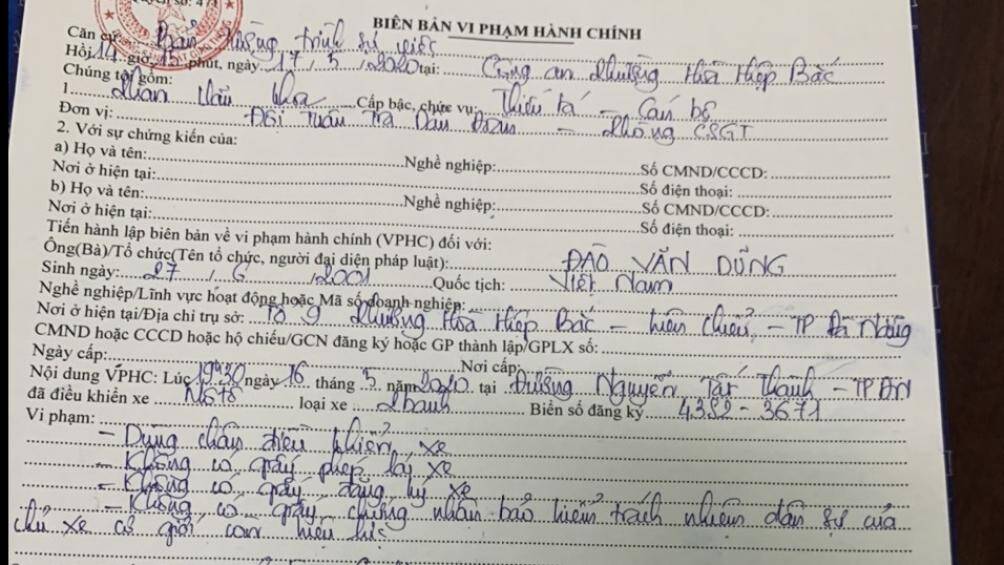 Quyển số: 471
BIÊN BẢN VI PHẠM HÀNH CHÍNH
Căn cứ: Bản tường trình sự việc
Hồi 14 giờ 15 phút, ngày 17, 5, 2020 tại: Công an Phường Hòa Hiệp Bắc
Chúng tôi gồm:
1. Phan Cấp bậc, chức vụ: Thiếu tá – Cán bộ
Đơn vị: Đội Tuần Tra Dẫn Đoàn – Phòng CSGT
2. Với sự chứng kiến của:
a) Họ và tên: Nghề nghiệp: Số CMND/CCCD:
Nơi ở hiện tại: Số điện thoại:
b) Họ và tên: Nghề nghiệp: Số CMND/CCCD:
Nơi ở hiện tại: Số điện thoại:
Tiến hành lập biên bản về vi phạm hành chính (VPHC) đối với:
Ông(Bà)/Tổ chức(Tên tổ chức, người đại diện pháp luật): ĐÀO VĂN DŨNG
Sinh ngày: 27, 6, 2001 Quốc tịch: Việt Nam
Nghề nghiệp/Lĩnh vực hoạt động hoặc Mã số doanh nghiệp:
Nơi ở hiện tại/Địa chỉ trụ sở: Tổ 9 Phường Hòa Hiệp Bắc – Liên Chiểu – TP Đà Nẵng
CMND hoặc CCCD hoặc hộ chiếu/GCN đăng ký hoặc GP thành lập/GPLX số:
Ngày cấp: Nơi cấp:
Nội dung VPHC: Lúc 19h30 ngày 16 tháng 5 năm 2020 tại Đường Nguyễn Tất Thành – TP ĐN
đã điều khiển xe Môtô loại xe 2 bánh Biển số đăng ký 43S2-3671
Vi phạm:
– Dùng chân điều khiển xe
– Không có giấy phép lái xe
– Không có giấy đăng ký xe
– Không có giấy chứng nhận bảo hiểm trách nhiệm dân sự của
chủ xe cơ giới còn hiệu lực